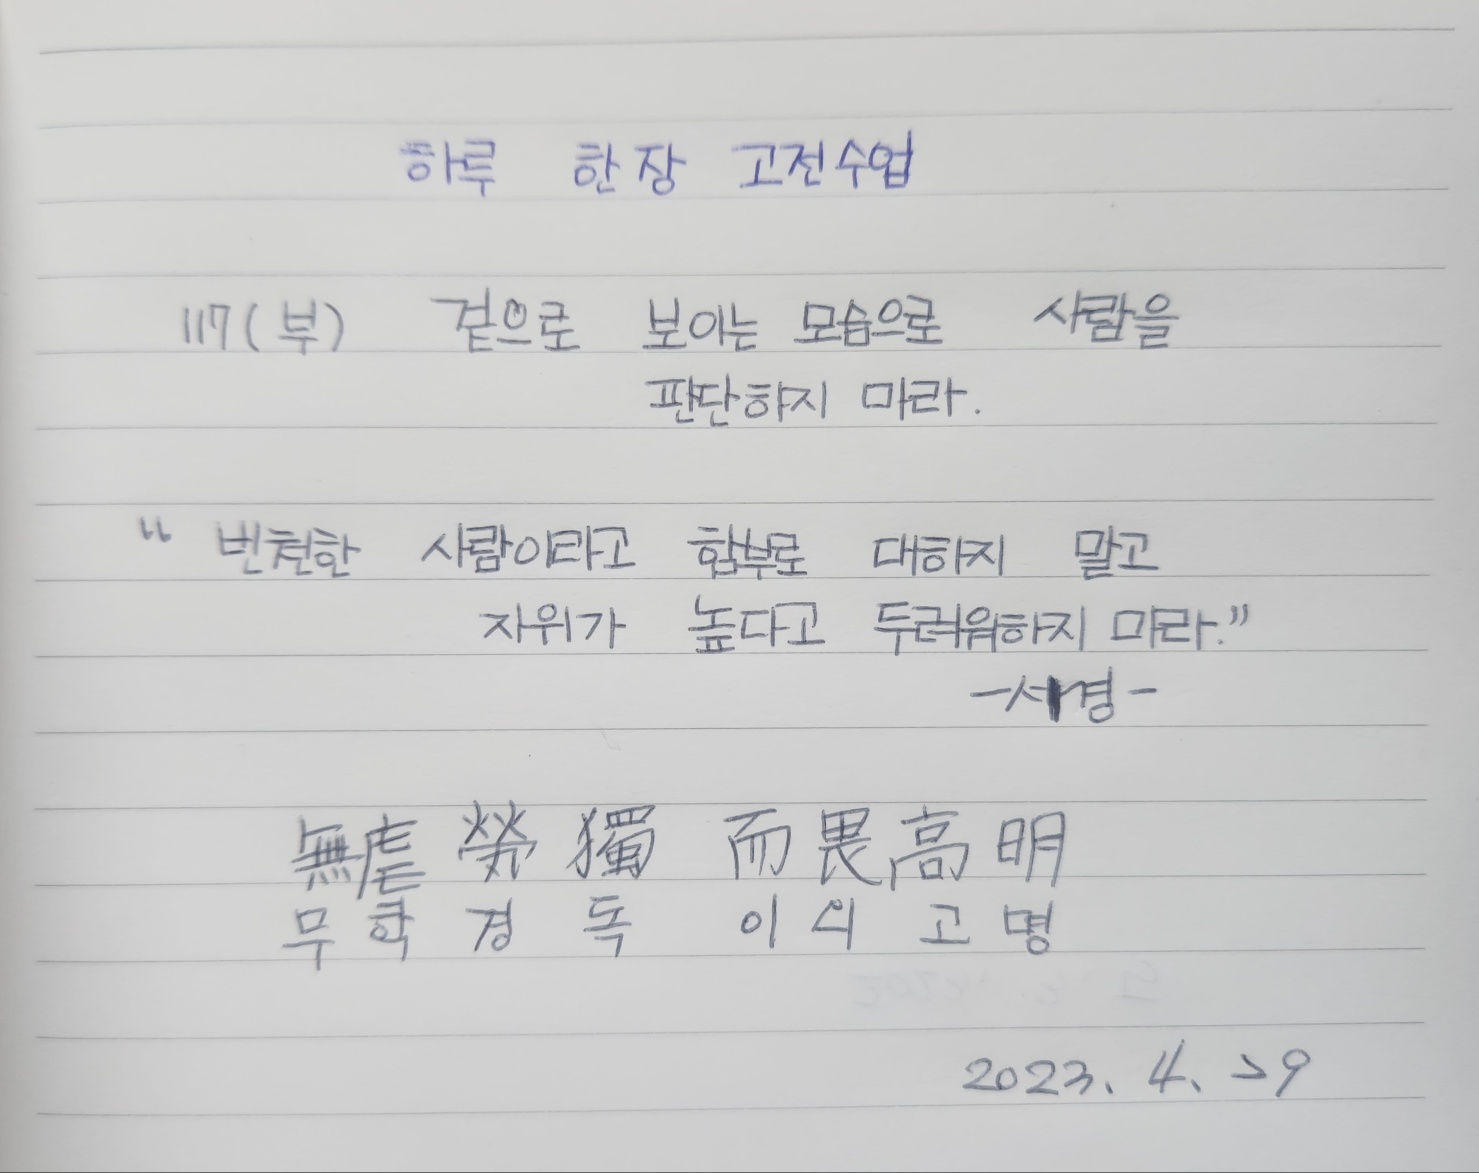 하루 한장 고전수업
117(부) 겉으로 보이는 모습으로 사람을
판단하지 마라.
“ 빈천한 사람이라고 함부로 대하지 말고
지위가 높다고 두려워하지 마라.”
-서경-
無虐煢獨 而畏高明
무학경독 이외고명
2023. 4. 29